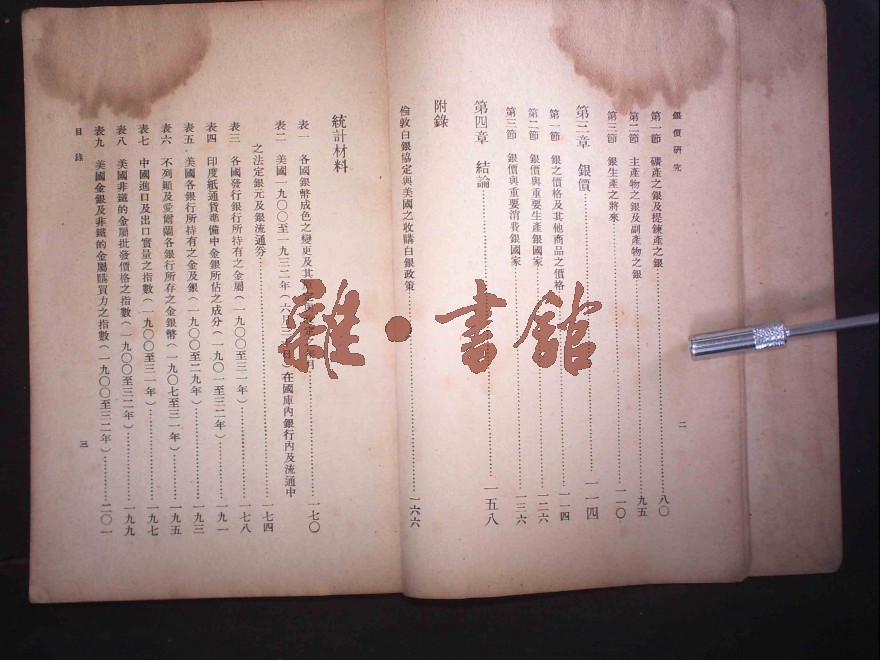 銀價研究
二
第一節 礦產之銀及提鍊產之銀……八〇
第二節 主產物之銀及副產物之銀……九五
第三節 銀生產之將來……一一〇
第三章 銀價……一一四
第一節 銀之價格及其他商品之價格……一一四
第二節 銀價與重要生產銀國家……一二六
第三節 銀價與重要消費銀國家……一三六
第四章 結論……一五八
附錄
倫敦白銀協定與美國之收購白銀政策……一六六
統計材料
表一 各國銀幣成色之變更及其 年月……一七〇
表二 美國一九〇〇至一九三二年(六月 日)在國庫內銀行內及流通中
之法定銀元及銀流通券……一七四
表三 各國發行銀行所持有之金屬(一九〇〇至三一年)……一七八
表四 印度紙通貨準備中金銀所佔之成分(一九〇一至三二年)……一九一
表五 美國各銀行所持有之金及銀(一九〇〇至二九年)……一九三
表六 不列顛及愛爾蘭各銀行所存之金銀幣(一九〇七至三一年)……一九五
表七 中國進口及出口實量之指數(一九〇〇至三一年)……一九七
表八 美國非鐵的金屬批發價格之指數(一九〇〇至三二年)……一九九
表九 美國金銀及非鐵的金屬購買力之指數(一九〇〇至三二年)……二〇一
目錄
三
雜·書館